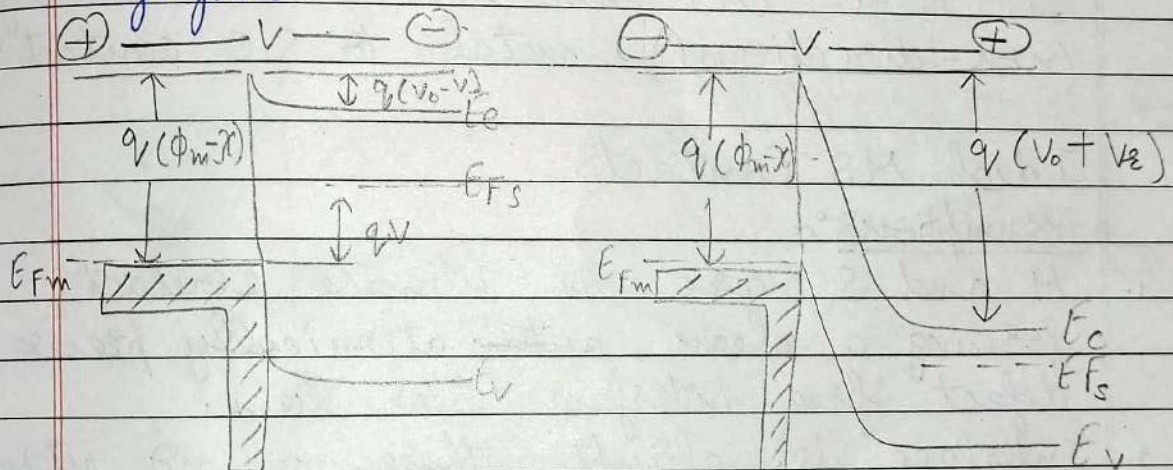 ⊕ V ⊖
⊖ V ⊕
q(V₀-V)
Ec
q(Φm-χ)
EFs
qV
EFm
Ev
q(Φm-χ)
q(V₀ + Vr)
EFm
Ec
EFs
Ev